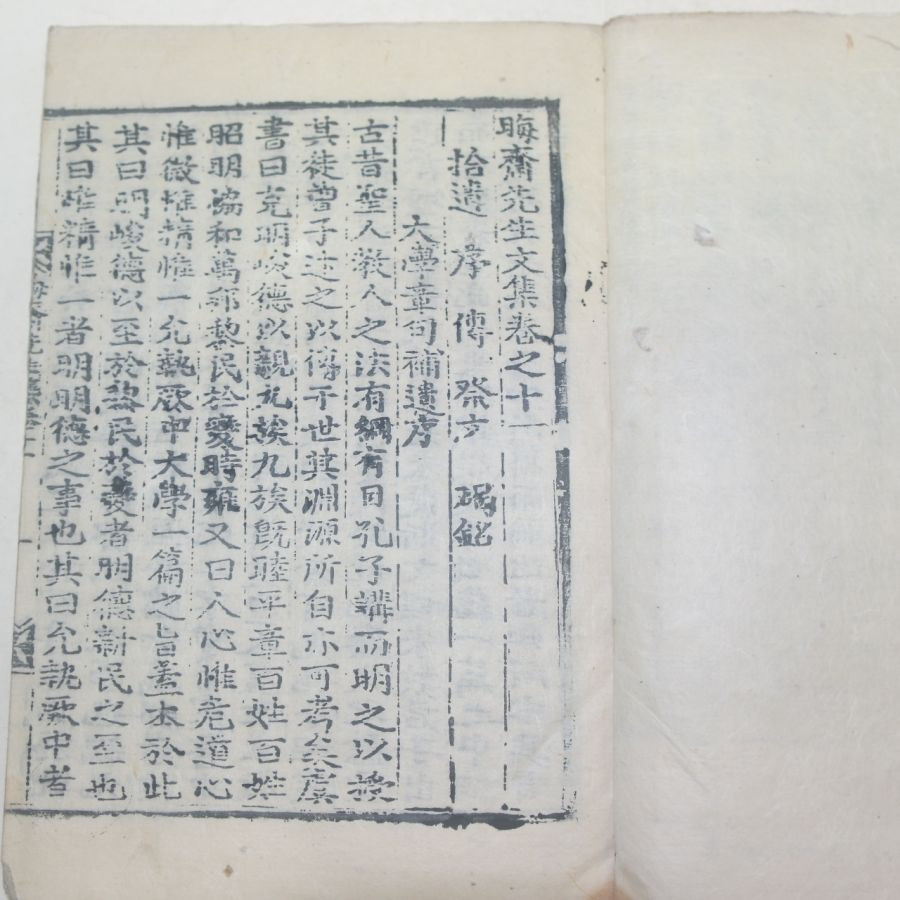 晦齋先生文集卷之十一
拾遺 序 傳 祭文 碣銘
大學章句補遺序
古昔聖人敎人之法有綱有目孔子講而明之以授
其徒曾子述之以傳于世其淵源所自亦可考矣虞
書曰克明峻德以親九族九族旣睦平章百姓百姓
昭明恊和萬邦黎民於變時雍又曰人心惟危道心
惟微惟精惟一允執厥中大學一篇之旨蓋本於此
其曰明峻德以至於黎民於變者明德新民之至也
其曰惟精惟一者明明德之事也其曰允執厥中者